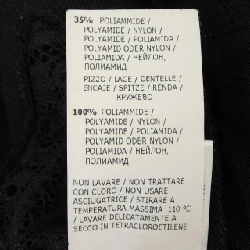 35% POLIAMMIDE /
POLYAMIDE / NYLON /
POLYAMIDE / POLIAMIDA /
POLYAMID ODER NYLON /
POLIAMIDA / НЕЙЛОН,
ПОЛИАМИД
PIZZO / LACE / DENTELLE /
ENCAJE / SPITZE / RENDA /
КРУЖЕВО
100% POLIAMMIDE /
POLYAMIDE / NYLON /
POLYAMIDE / POLIAMIDA /
POLYAMID ODER NYLON /
POLIAMIDA / НЕЙЛОН,
ПОЛИАМИД
NON LAVARE / NON TRATTARE
CON CLORO / NON USARE
ASCIUGATRICE / STIRARE A
TEMPERATURA MASSIMA 110 °C
/ LAVARE DELICATAMENTE A
SECCO IN TETRACLOROETILENE